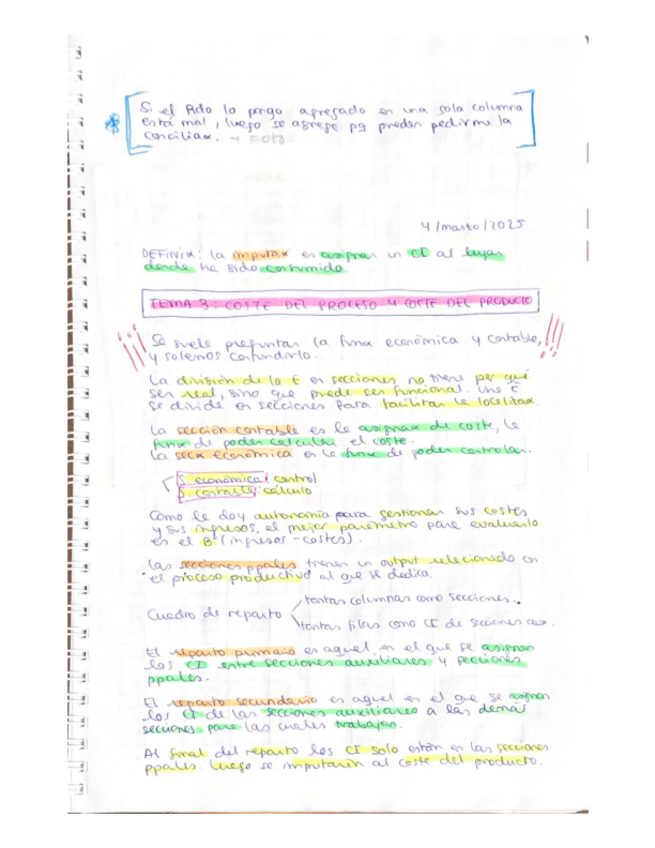 Si el Rdo lo pongo agregado en una sola columna
está mal, luego se agrega pq pueden pedirme la
conciliax. → FOTO
4/marzo/2025
DEFINIX: la imputax es asignar un CI al lugar
donde ha sido consumido.
TEMA 3: COSTE DEL PROCESO Y COSTE DEL PRODUCTO
Se suele preguntar la funx económica y contable,
y solemos confundirlo.
La división de la E en secciones no tiene per qué
ser real, sino que puede ser funcional. Una E
se divide en secciones para facilitar la localizax.
La sección contable es la asignax de coste, la
funx de poder calcular el coste.
La secx económica es la funx de poder controlar.
S. económica: control
S. contable: cálculo
Como le doy autonomía para gestionar sus costes
y sus ingresos, el mejor parámetro para evaluarlo
es el Bº (ingresos - costes).
Las secciones ppales tienen un output relacionado con
el proceso productivo al que se dedica.
Cuadro de reparto
tantas columnas como secciones.
tantas filas como CI de secciones aux.
El reparto primario es aquel en el que se asignan
los CI entre secciones auxiliares y secciones
ppales.
El reparto secundario es aquel en el que se asignan
los CI de las secciones auxiliares a las demás
secciones para las cuales trabajan.
Al final del reparto los CI solo están en las secciones
ppales. Luego se imputarán al coste del producto.